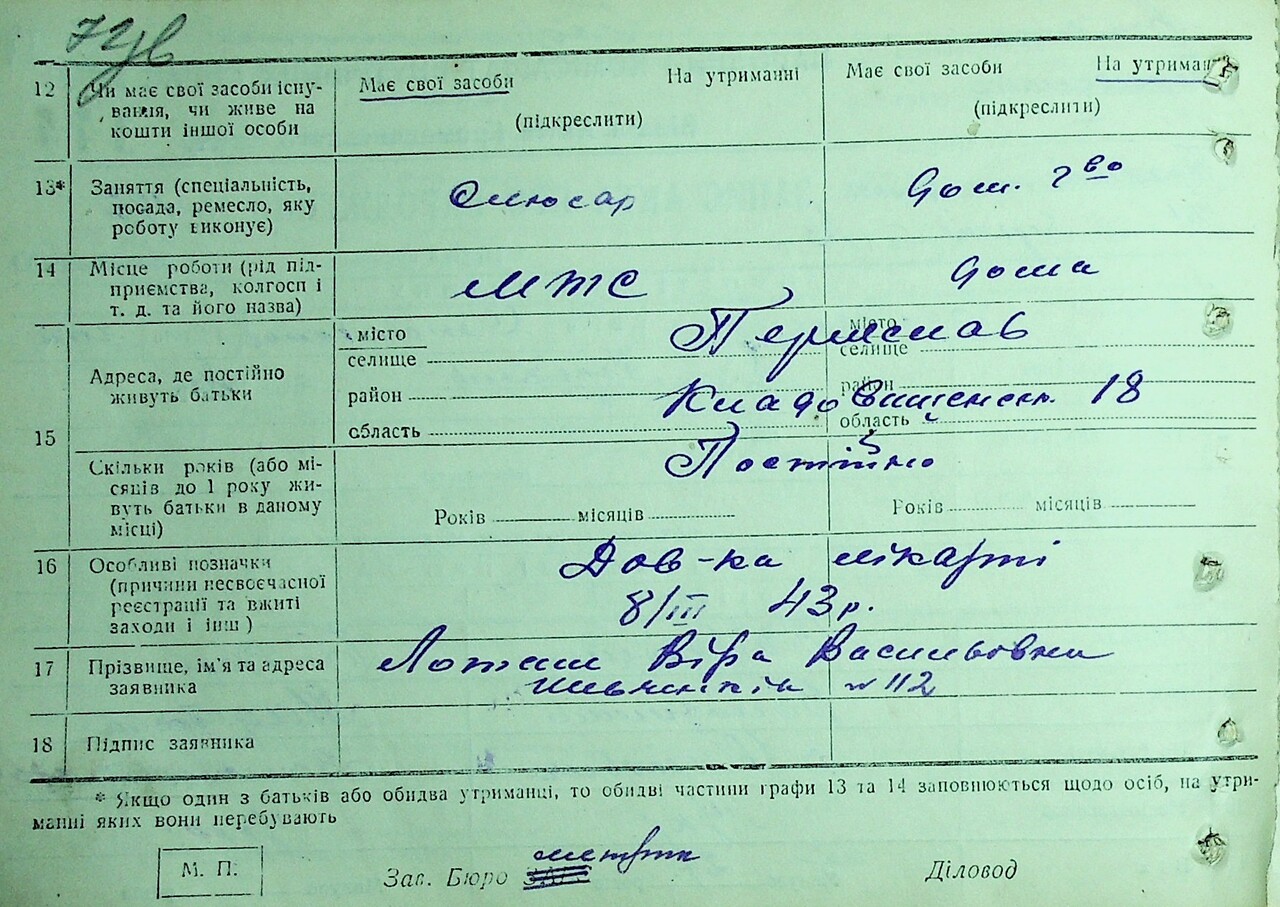 12 Чи має свої засоби існу-
вання, чи живе на
кошти іншої особи
Має свої засоби На утриманні
(підкреслити)
Має свої засоби На утриманні
(підкреслити)
13* Заняття (спеціальність,
посада, ремесло, яку
роботу виконує)
Слюсар
Дом. г-во
14 Місце роботи (рід під-
приємства, колгосп і
т. д. та його назва)
МТС
Дома
15 Адреса, де постійно
живуть батьки
місто
селище
район
область
місто
селище
район
область
Переяслав
18
Скільки років (або мі-
сяців до 1 року жи-
вуть батьки в даному
місці)
Постійно
Років місяців
Років місяців
16 Особливі позначки
(причини несвоєчасної
реєстрації та вжиті
заходи і інш )
Дов-ка лікарні
8/III 43 р.
17 Прізвище, ім'я та адреса
заявника
Віра Васильовна
№ 112
18 Підпис заявника
* Якщо один з батьків або обидва утриманці, то обидві частини графи 13 та 14 заповнюються щодо осіб, на утри-
манні яких вони перебувають
М. П.
Зав. Бюро ЗАГС метрик
Діловод